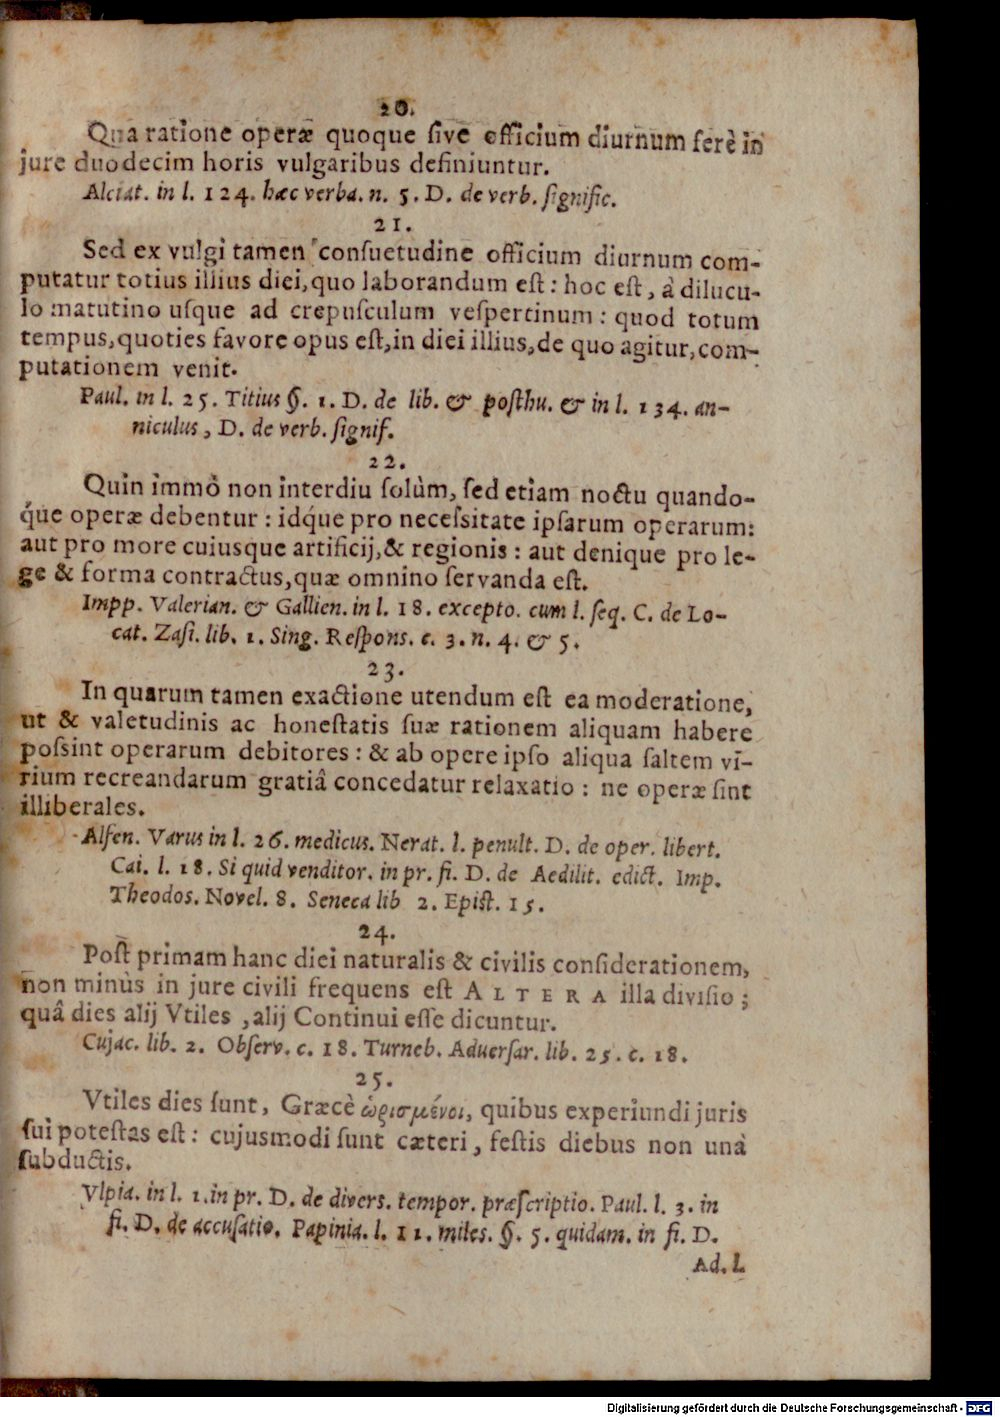 20.
Qua ratione operæ quoque ſive officium diurnum ferè in
jure duodecim horis vulgaribus definiuntur.
Alciat. in l. 124. hæc verba. n. 5. D. de verb. ſignific.
21.
Sed ex vulgi tamen conſuetudine officium diurnum com-
putatur totius illius diei, quo laborandum eſt: hoc eſt, à dilucu-
lo matutino uſque ad crepuſculum veſpertinum: quod totum
tempus, quoties favore opus eſt, in diei illius, de quo agitur, com-
putationem venit.
Paul. in l. 25. Titius §. 1. D. de lib. & poſthu. & in l. 134. an-
niculus, D. de verb. ſignif.
22.
Quin immò non interdiu ſolùm, ſed etiam noctu quando-
q́ue operæ debentur: idq́ue pro neceſsitate ipſarum operarum:
aut pro more cuiusque artificij, & regionis: aut denique pro le-
ge & forma contractus, quæ omnino ſervanda eſt.
Impp. Valerian. & Gallien. in l. 18. excepto. cum l. ſeq. C. de Lo-
cat. Zaſi. lib. 1. Sing. Reſpons. c. 3. n. 4. & 5.
23.
In quarum tamen exactione utendum eſt ea moderatione,
ut & valetudinis ac honeſtatis ſuæ rationem aliquam habere
poſsint operarum debitores: & ab opere ipſo aliqua ſaltem vi-
rium recreandarum gratiâ concedatur relaxatio: ne operæ ſint
illiberales.
Alfen. Varus in l. 26. medicus. Nerat. l. penult. D. de oper. libert.
Cai. l. 18. Si quid venditor. in pr. fi. D. de Aedilit. edict. Imp.
Theodos. Novel. 8. Seneca lib 2. Epiſt. 15.
24.
Poſt primam hanc diei naturalis & civilis conſiderationem,
non minùs in jure civili frequens eſt ALTERA illa diviſio;
quâ dies alij Vtiles, alij Continui eſſe dicuntur.
Cujac. lib. 2. Obſerv. c. 18. Turneb. Aduerſar. lib. 25. c. 18.
25.
Vtiles dies ſunt, Græcè ὡρισμένοι, quibus experiundi juris
ſui poteſtas eſt: cujusmodi ſunt cæteri, feſtis diebus non unà
ſubductis.
Vlpia. in l. 1. in pr. D. de divers. tempor. præſcriptio. Paul. l. 3. in
fi. D. de accuſatio. Papinia. l. 11. miles. §. 5. quidam. in fi. D.
Ad. l.
Digitalisierung gefördert durch die Deutsche Forschungsgemeinschaft - DFG